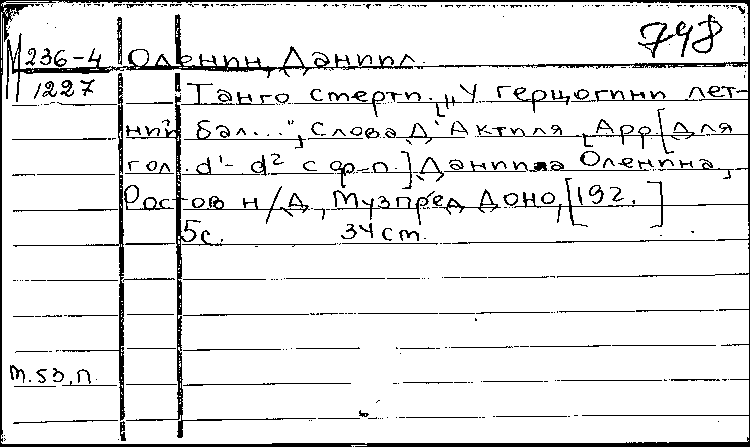 798
М 236-4 Оленин, Даниил.
1227 Танго смерти. ["У герцогини лет-
ний бал...", Слова Д'Актиля, Арр. [для
гол. d¹-d² с ф-п.] Даниила Оленина,
Ростов н/Д, Музпред Доно, [192. ]
5с. 34 см.
м.53.п.